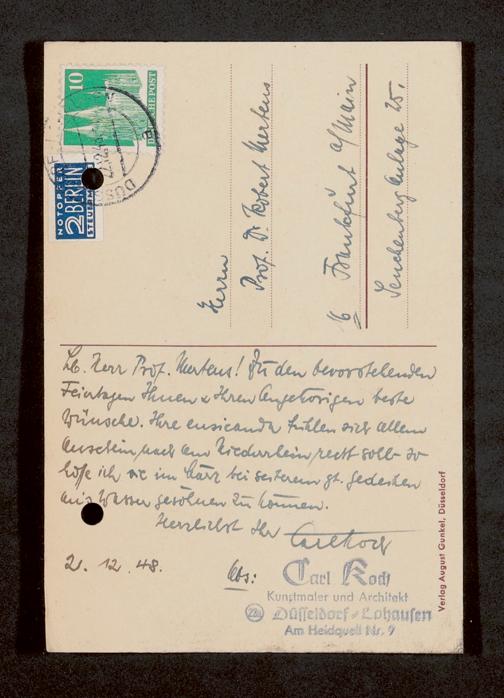 10
DEUTSCHE POST
NOTOPFER
2 BERLIN
STEUERMARKE
Herrn
Prof. Dr. Robert Mertens
16 Frankfurt a/Main
Senckenberg Anlage 25.
Lb. Herr Prof. Mertens! Zu den bevorstehenden
Feiertagen Ihnen u Ihren Angehörigen beste
Wünsche. Ihre ensicanda fühlen sich allem
Anschein nach am Niederrhein recht
hoffe ich sie im März bei weiterem gt. gedeihen
ans Wasser gewöhnen zu können.
Herzlichst Ihr Carl Koch
21.12.48.
Abs:
Carl Koch
Kunstmaler und Architekt
(22a) Düsseldorf-Lohausen
Am Heidquell Nr. 9
Verlag August Gunkel, Düsseldorf